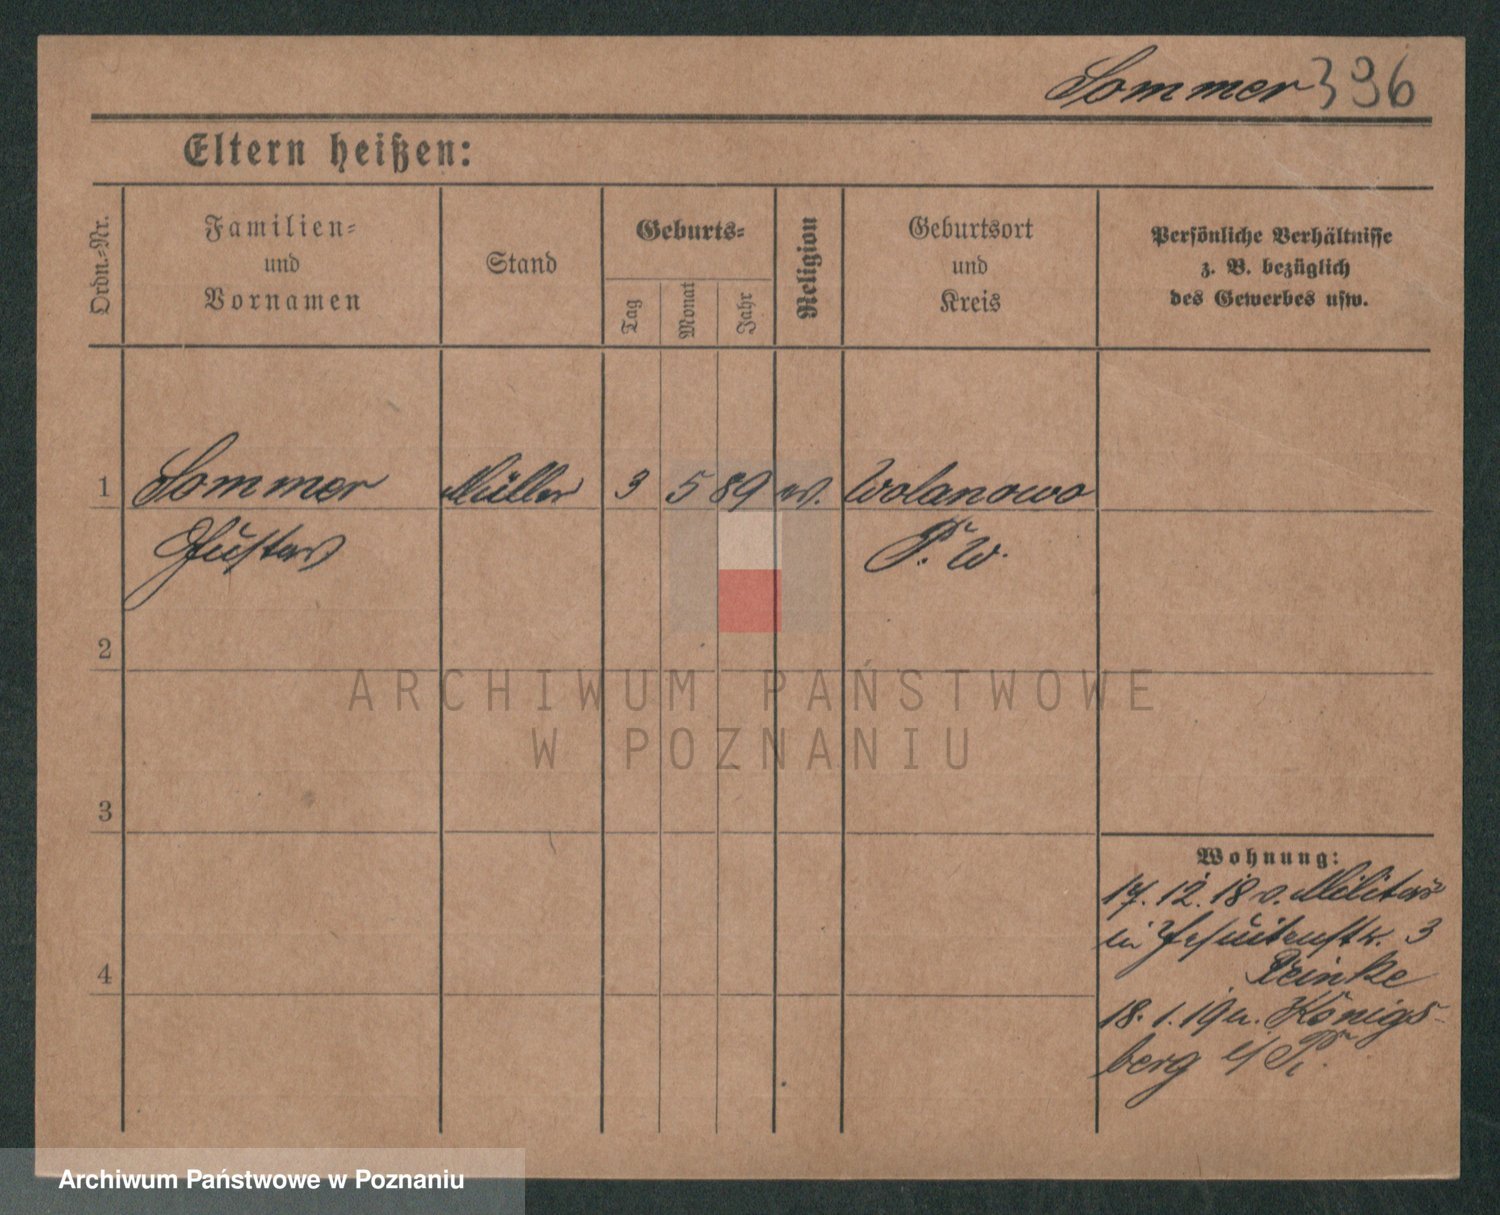 Sommer 396
Eltern heißen:
Ordn.=Nr.
Familien=
und
Vornamen
Stand
Geburts=
Tag
Monat
Jahr
Religion
Geburtsort
und
Kreis
Persönliche Verhältnisse
z. B. bezüglich
des Gewerbes usw.
1 Sommer Müller 3 5 89 ev. Wolanowo
Gustav P. W.
2
3
4
Wohnung:
17. 12. 18 v. Militär
in Jesuitenstr. 3
Reinke
18. 1. 19 n. Königs-
berg i/ Pr.
ARCHIWUM PAŃSTWOWE
W POZNANIU
Archiwum Państwowe w Poznaniu